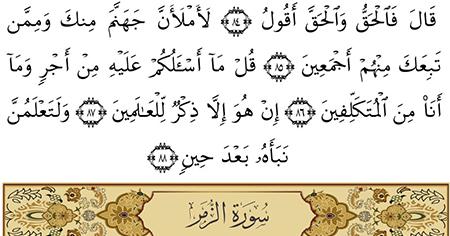 قَالَ فَٱلۡحَقُّ وَٱلۡحَقَّ أَقُولُ ﴿٨٤﴾ لَأَمۡلَأَنَّ جَهَنَّمَ مِنكَ وَمِمَّن
تَبِعَكَ مِنۡهُمۡ أَجۡمَعِينَ ﴿٨٥﴾ قُلۡ مَآ أَسۡـَٔلُكُمۡ عَلَيۡهِ مِنۡ أَجۡرٖ وَمَآ
أَنَا۠ مِنَ ٱلۡمُتَكَلِّفِينَ ﴿٨٦﴾ إِنۡ هُوَ إِلَّا ذِكۡرٞ لِّلۡعَٰلَمِينَ ﴿٨٧﴾ وَلَتَعۡلَمُنَّ
نَبَأَهُۥ بَعۡدَ حِينِۭ ﴿٨٨﴾
سُورَةُ الزُّمَرِ